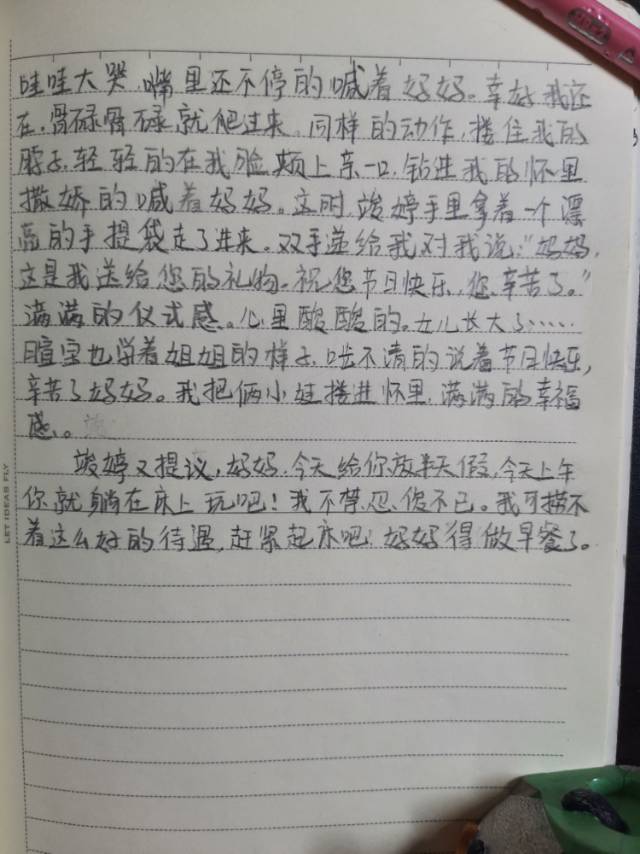 哇哇大哭,嘴里还不停的喊着妈妈。幸好我还
在,骨碌骨碌就爬过来,同样的动作,搂住我的
脖子,轻轻的在我脸颊上亲一口,钻进我的怀里
撒娇的喊着妈妈。这时竣婷手里拿着一个漂
亮的手提袋走了进来。双手递给我对我说:“妈妈,
这是我送给您的礼物。祝您节日快乐,您辛苦了。”
满满的仪式感。心里酸酸的。女儿长大了……
暄宝也学着姐姐的样子,吐不清的说着节日快乐,
辛苦了妈妈。我把俩小娃搂进怀里,满满的幸福
感。
竣婷又提议,妈妈,今天给你放半天假,今天上午
你就躺在床上玩吧!我不禁忍俊不已。我可捞不
着这么好的待遇,赶紧起床吧!妈妈得做早餐了。
LET IDEAS FLY